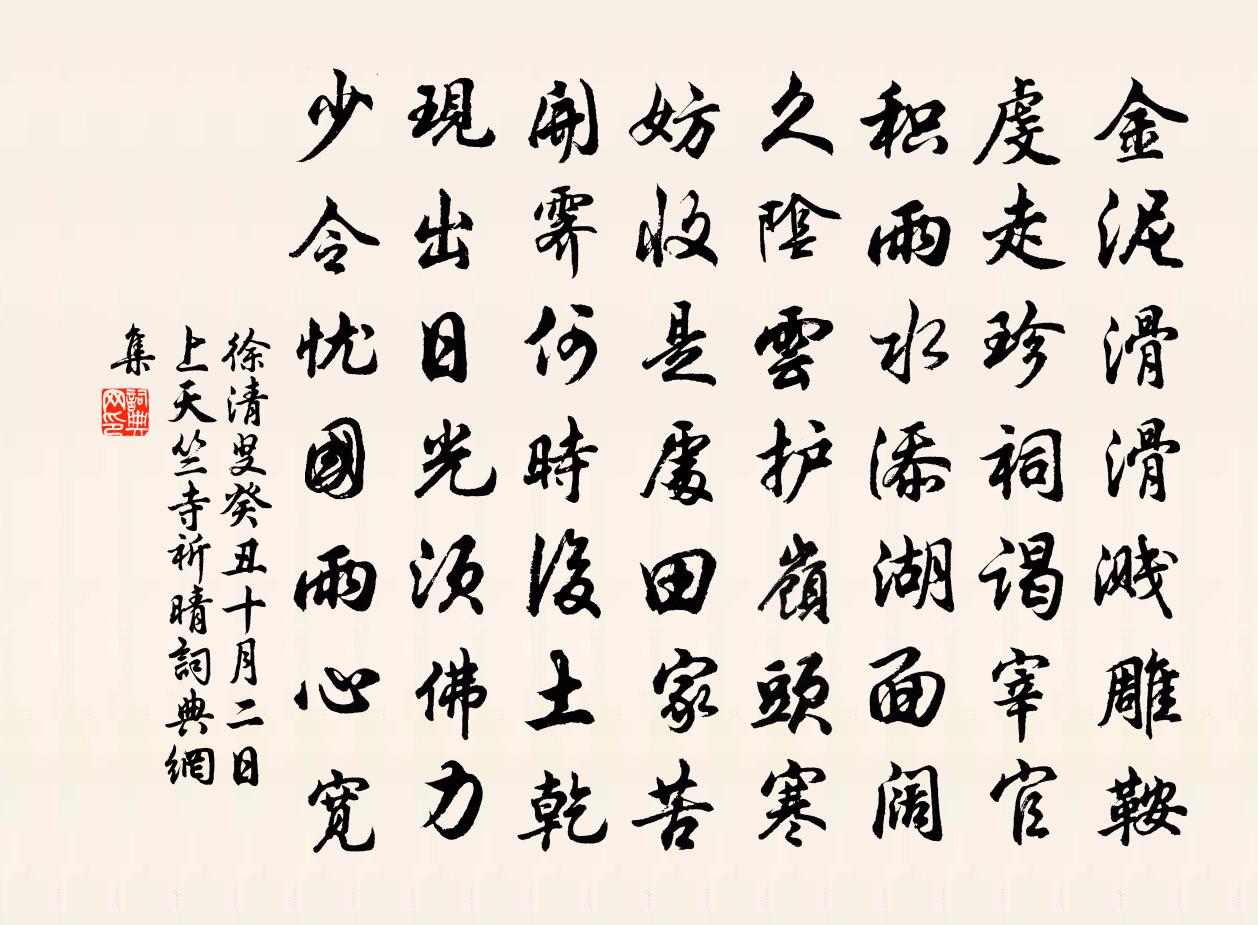 金泥滑滑溅雕鞍
虔走珍祠谒宰官
积雨水添湖面阔
久陰雲护嶺頭寒
妨收是處田家苦
開霽何時後土乾
現出日光须佛力
少令忧國雨心寬
徐清叟癸丑十月二日
上天竺寺祈晴詞典網
集
詞典
网印